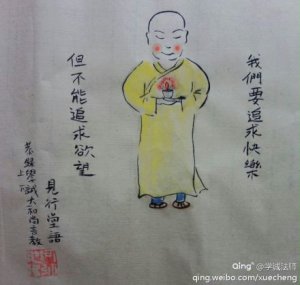 我們要追求快樂
但不能追求欲望
見行堂語
恭錄學誠大和尚言教
qing @学诚法师
qing.weibo.com/xuecheng